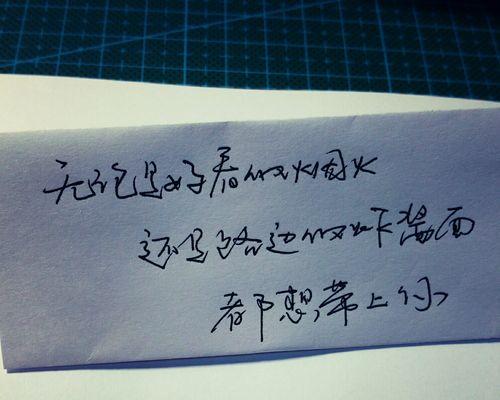 无论是好看的烟火
还是路边的炸酱面
都想带上你